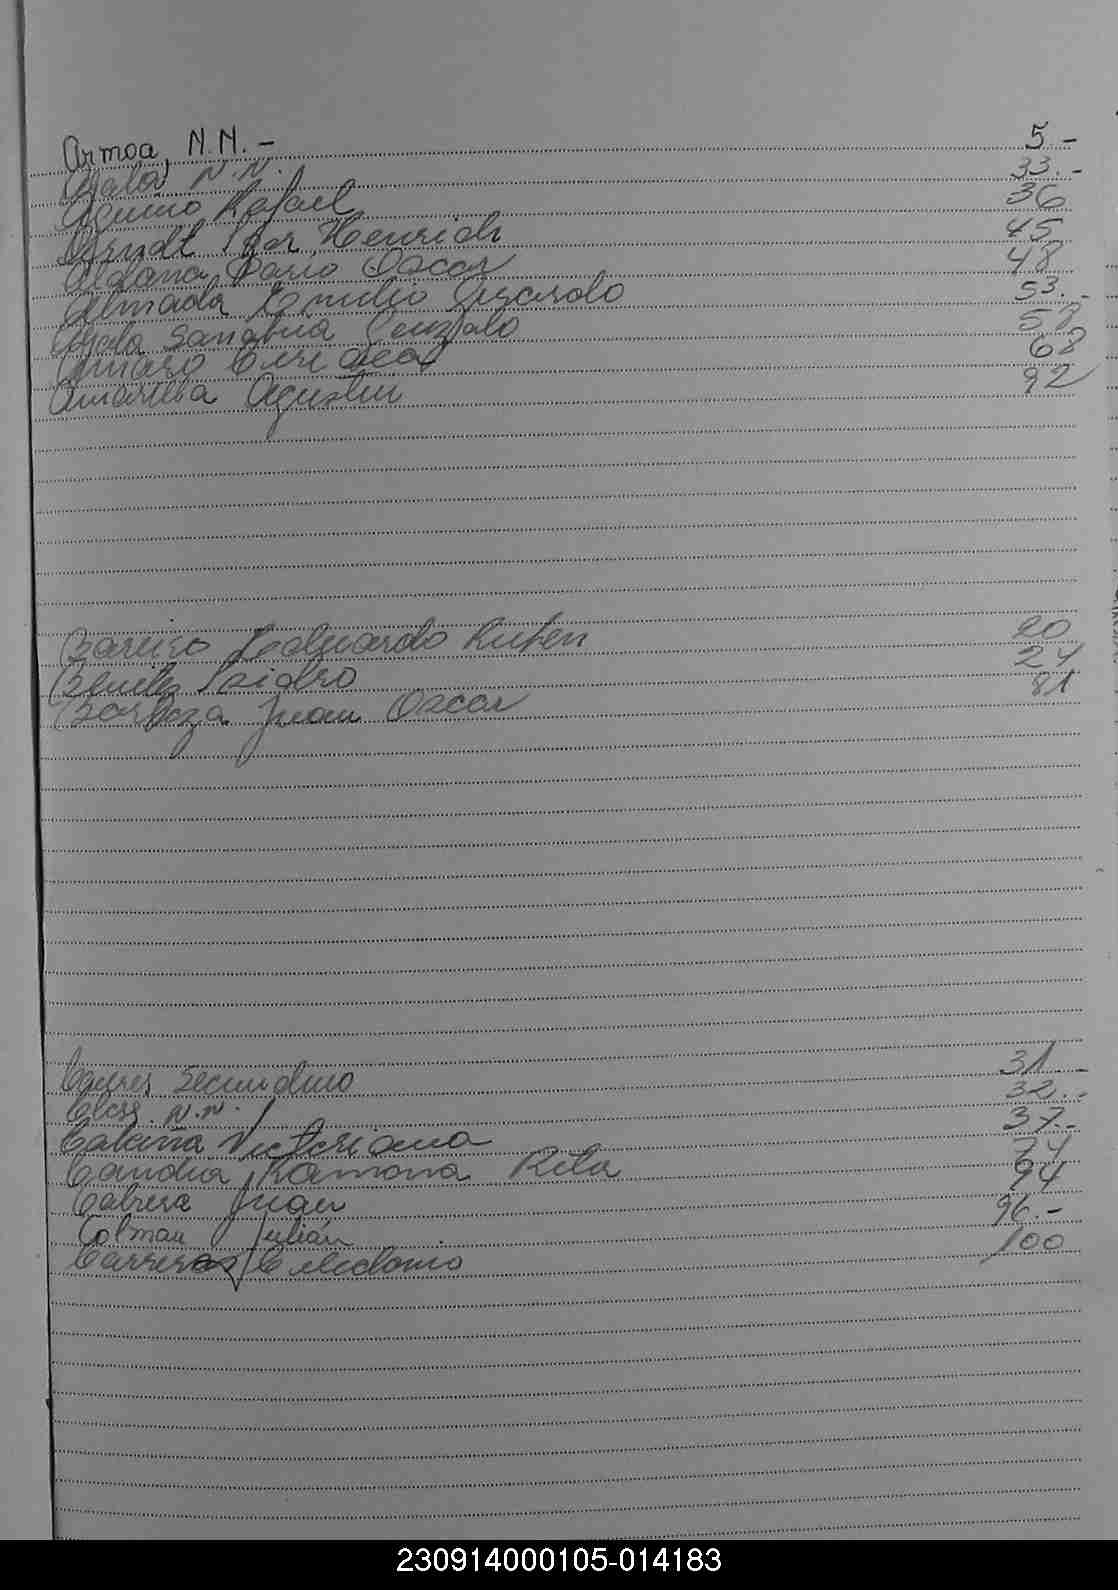 Armoa, N.N. - 5.-
Ayala N.N. 33.-
Aquino Rafael 36
Arndt Igor Henrich 45
Aldana Dario Oscar 48
Almada Emilio Gerardo 53.-
Ayala Sanabria Gonzalo 58
Amaro 68
Amarilla Agustin 92
Bareiro Edguardo Ruben 20
Benitez Isidro 24
Barboza Juan Oscar 81
Caceres Secundino 31.-
N.N. 32.-
Cabaña Victoriana 37.-
Candia Ramona Rita 74
Cabrera Juan 94
Colman Julián 96.-
Carreras Celedonio 100
230914000105-014183